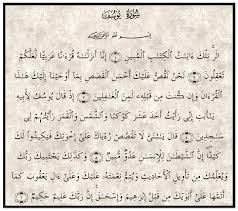 سُورَةُ يُوسُفَ
بِسْمِ اللَّهِ الرَّحْمَٰنِ الرَّحِيمِ
الٓر ۚ تِلْكَ ءَايَٰتُ ٱلْكِتَٰبِ ٱلْمُبِينِ ۝ إِنَّآ أَنزَلْنَٰهُ قُرْءَٰنًا عَرَبِيًّا لَّعَلَّكُمْ
تَعْقِلُونَ ۝ نَحْنُ نَقُصُّ عَلَيْكَ أَحْسَنَ ٱلْقَصَصِ بِمَآ أَوْحَيْنَآ إِلَيْكَ هَٰذَا
ٱلْقُرْءَانَ وَإِن كُنتَ مِن قَبْلِهِۦ لَمِنَ ٱلْغَٰفِلِينَ ۝ إِذْ قَالَ يُوسُفُ لِأَبِيهِ
يَٰٓأَبَتِ إِنِّى رَأَيْتُ أَحَدَ عَشَرَ كَوْكَبًا وَٱلشَّمْسَ وَٱلْقَمَرَ رَأَيْتُهُمْ لِى
سَٰجِدِينَ ۝ قَالَ يَٰبُنَىَّ لَا تَقْصُصْ رُءْيَاكَ عَلَىٰٓ إِخْوَتِكَ فَيَكِيدُوا۟ لَكَ
كَيْدًا ۖ إِنَّ ٱلشَّيْطَٰنَ لِلْإِنسَٰنِ عَدُوٌّ مُّبِينٌ ۝ وَكَذَٰلِكَ يَجْتَبِيكَ رَبُّكَ
وَيُعَلِّمُكَ مِن تَأْوِيلِ ٱلْأَحَادِيثِ وَيُتِمُّ نِعْمَتَهُۥ عَلَيْكَ وَعَلَىٰٓ ءَالِ يَعْقُوبَ كَمَآ
أَتَمَّهَا عَلَىٰٓ أَبَوَيْكَ مِن قَبْلُ إِبْرَٰهِيمَ وَإِسْحَٰقَ ۚ إِنَّ رَبَّكَ عَلِيمٌ حَكِيمٌ ۝